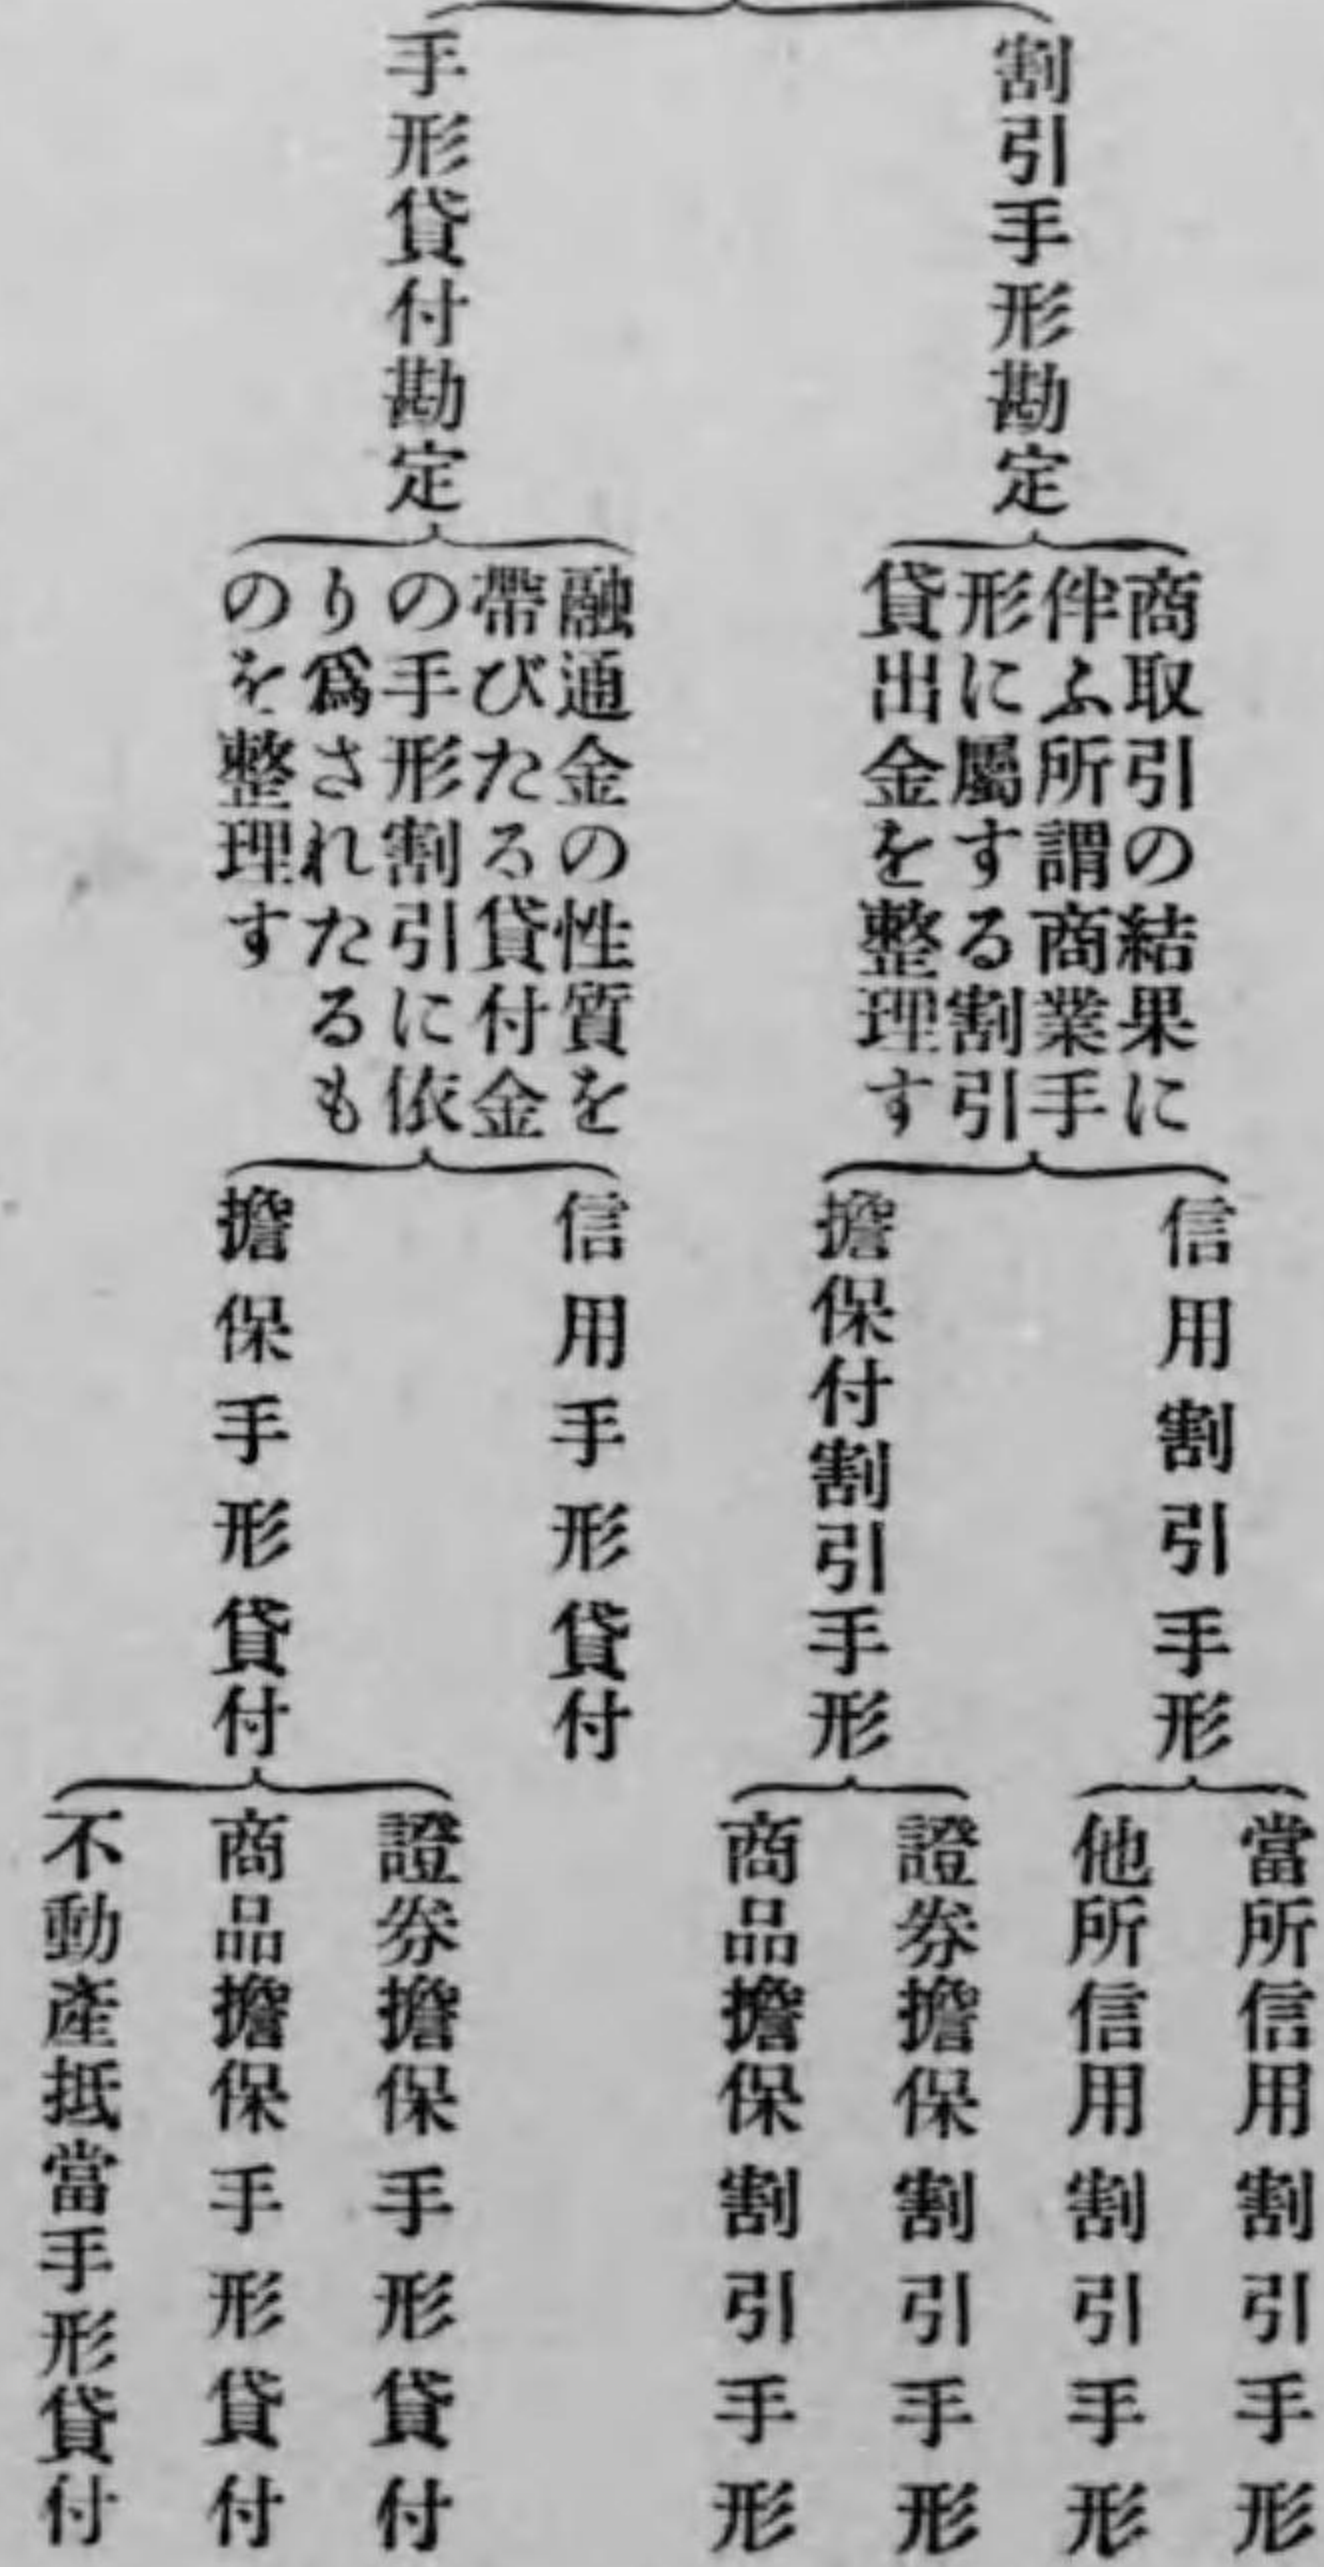 割引手形勘定
商取引の結果に
伴ふ所謂商業手
形に屬する割引
貸出金を整理す
信用割引手形
當所信用割引手形
他所信用割引手形
擔保付割引手形
證券擔保割引手形
商品擔保割引手形
手形貸付勘定
融通金の性質を
帶びたる貸付金
の手形割引に依
り爲されたるも
のを整理す
信用手形貸付
擔保手形貸付
證券擔保手形貸付
商品擔保手形貸付
不動產抵當手形貸付